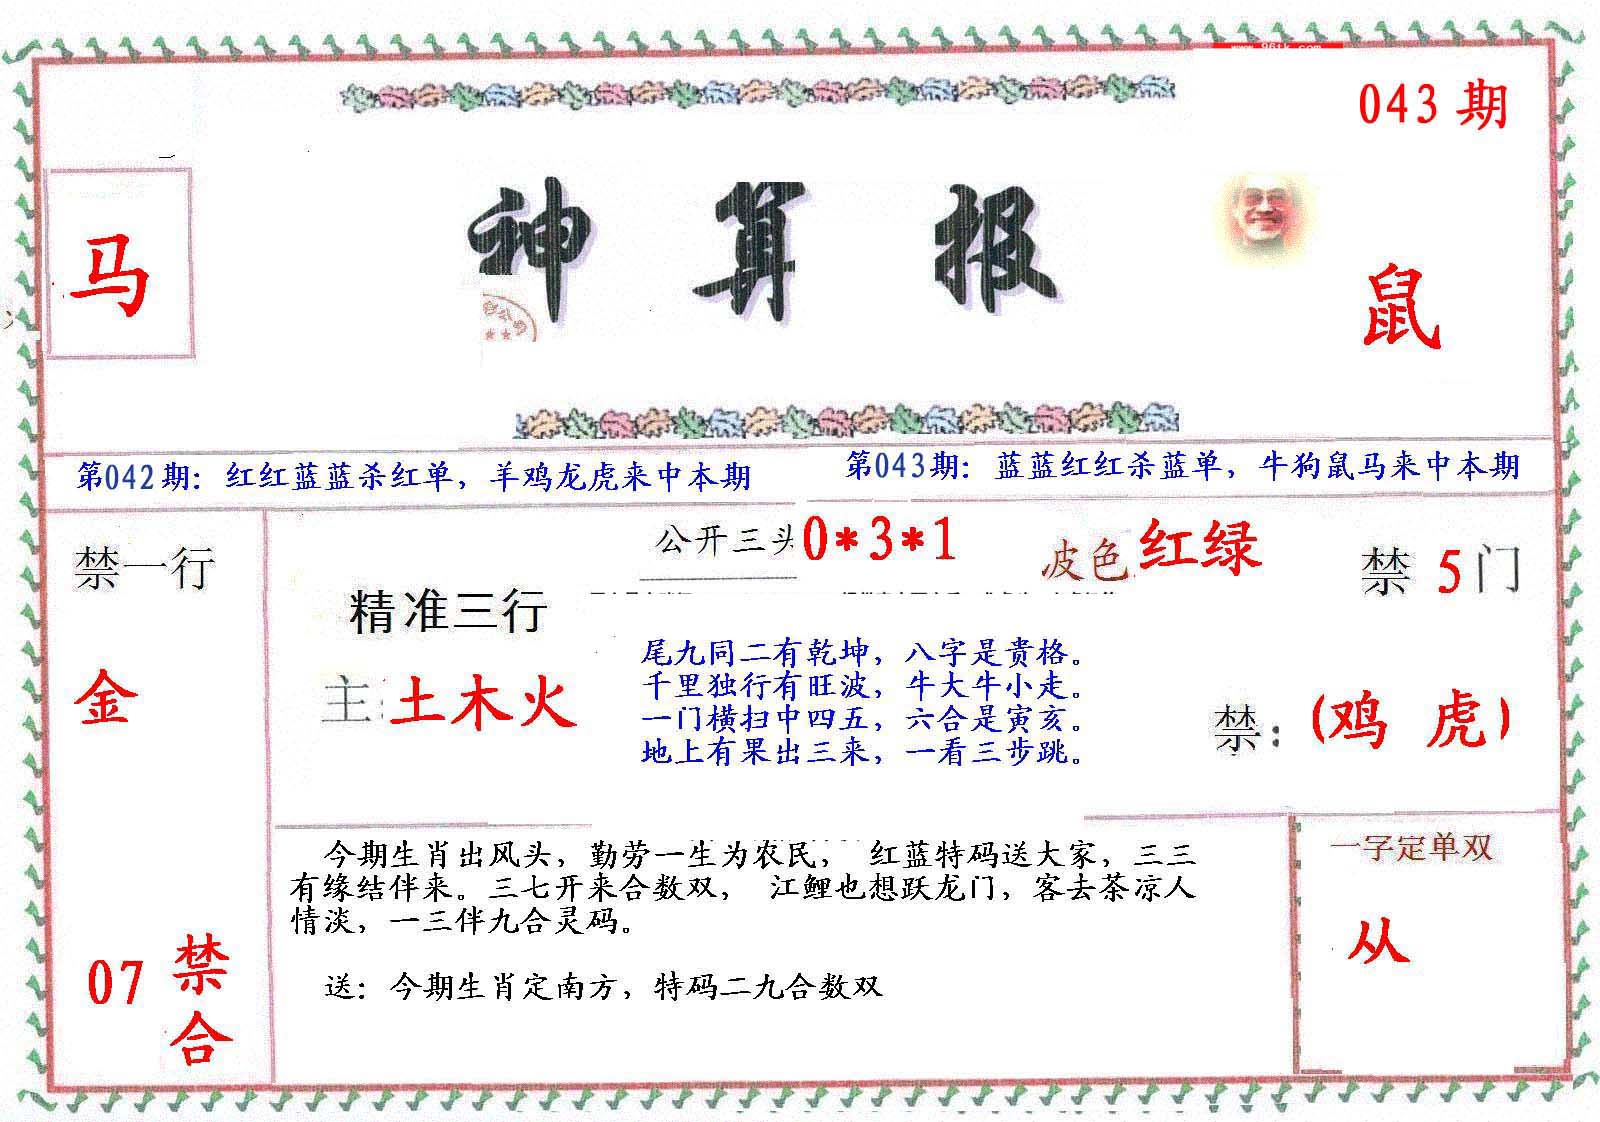 043期
马
神算报
鼠
第042期：红红蓝蓝杀红单，羊鸡龙虎来中本期
第043期：蓝蓝红红杀蓝单，牛狗鼠马来中本期
禁一行
金
07禁合
公开三头0*3*1
皮色:红绿
禁5门
精准三行
主:土木火
尾九同二有乾坤，八字是贵格。
千里独行有旺波，牛大牛小走。
一门横扫中四五，六合是寅亥。
地上有果出三来，一看三步跳。
禁：(鸡 虎)
今期生肖出风头，勤劳一生为农民， 红蓝特码送大家，三三
有缘结伴来。三七开来合数双， 江鲤也想跃龙门，客去茶凉人
情淡，一三伴九合灵码。
送：今期生肖定南方，特码二九合数双
一字定单双
从